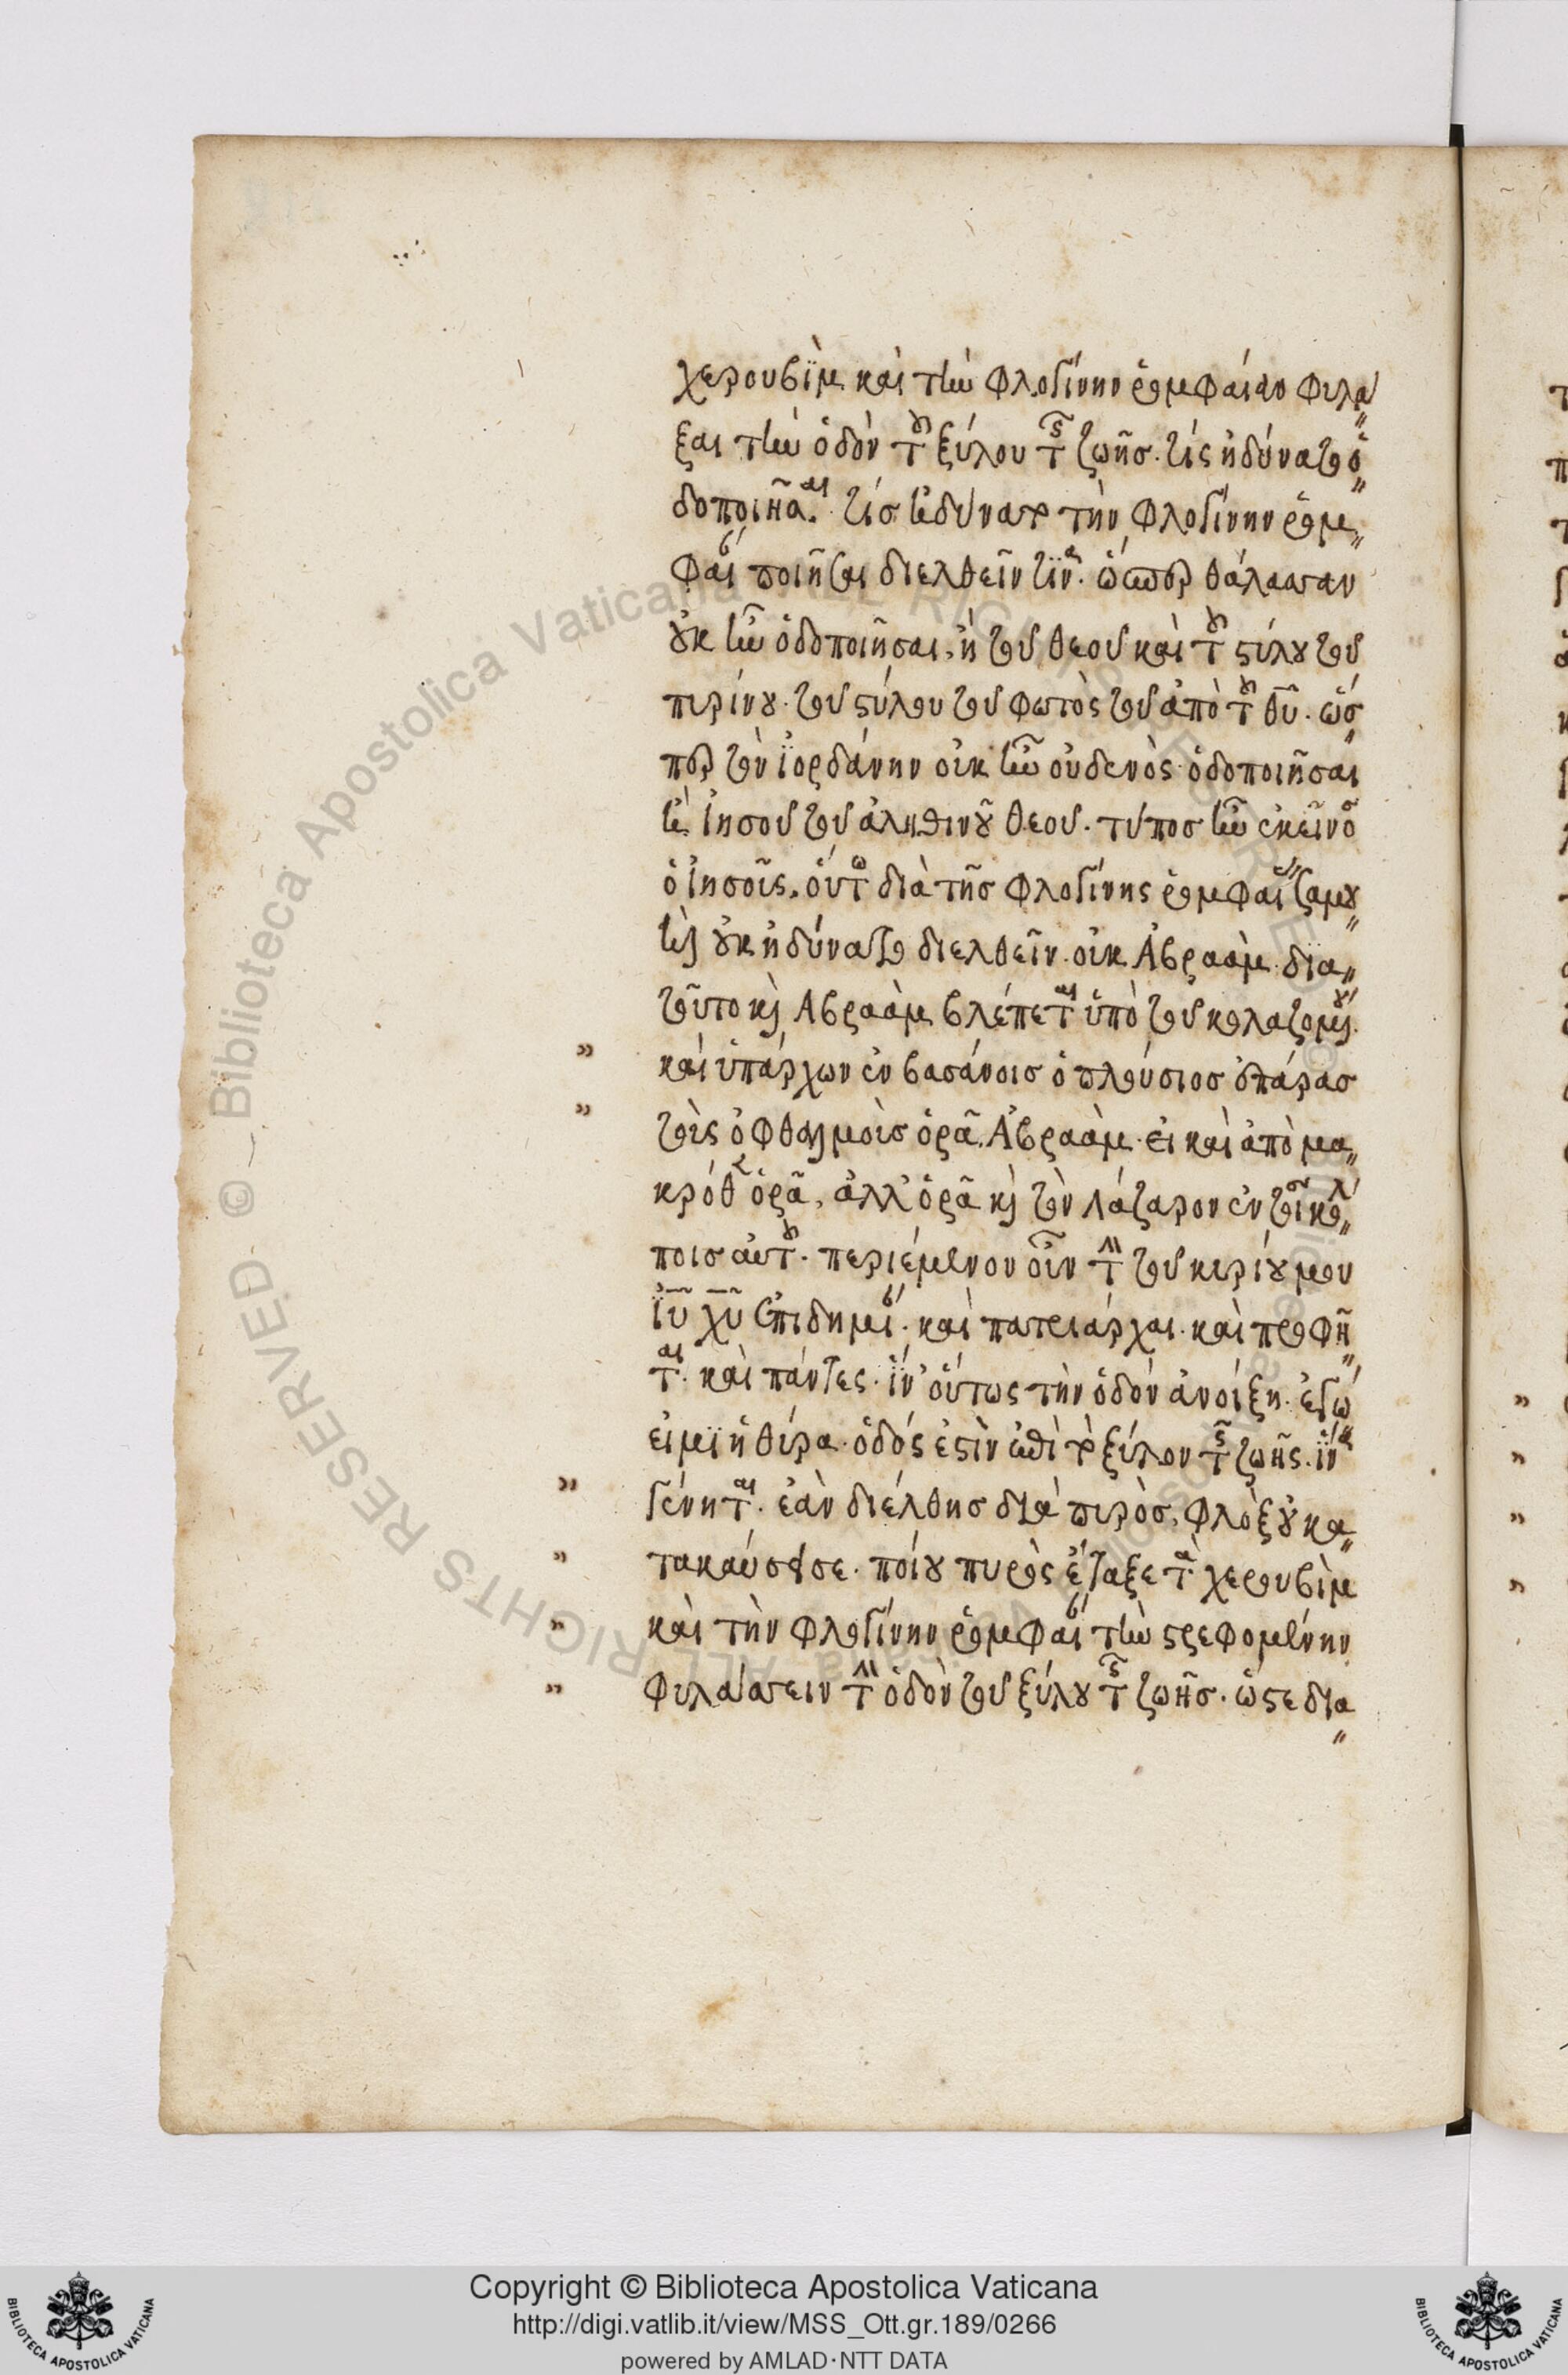 χερουβὶμ καὶ τὴν φλογίνην ῥομφαίαν φυλά
ξαι τὴν ὁδὸν τοῦ ξύλου τῆς ζωῆς. τίς ἠδύνατο ὁ
δοποιῆσαι. τίς ἠδύνατο τὴν φλογίνην ῥομ
φαίαν ποιῆσαι διελθεῖν τινα. ὥσπερ θάλασσαν
οὐκ ἦν ὁδοποιῆσαι, ἢ τοῦ θεοῦ καὶ τοῦ στύλου τοῦ
πυρίνου. τοῦ στύλου τοῦ φωτὸς τοῦ ἀπὸ τοῦ θῦ. ὥσ
περ τὸν ἰορδάνην οὐκ ἦν οὐδενὸς ὁδοποιῆσαι
ἢ ἰησοῦ τοῦ ἀληθινοῦ θεοῦ. τύπος ἦν ἐκεῖνος
ὁ ἰησοῦς. οὕτω διὰ τῆς φλογίνης ῥομφαίας σαμου
ὴλ οὐκ ἠδύνατο διελθεῖν. οὐκ Ἀβραάμ. διὰ
τοῦτο καὶ Ἀβραὰμ βλέπεται ὑπὸ τοῦ κολαζομένου.
καὶ ὑπάρχων ἐν βασάνοις ὁ πλούσιος ἐπάρας
τοὺς ὀφθαλμοὺς ὁρᾶ Ἀβραάμ. εἰ καὶ ἀπὸ μα
κρόθεν ὁρᾶ, ἀλλ' ὁρᾶ καὶ τὸν λάζαρον ἐν τοῖς κόλ
ποις αὐτοῦ. περιέμενον οὖν τὴν τοῦ κυρίου μου
ἰῦ χῦ ἐπιδημίαν. καὶ πατριάρχαι. καὶ προφῆ
ται. καὶ πάντες. ἵν' οὕτως τὴν ὁδὸν ἀνοίξη. ἐγώ
εἰμι ἡ θύρα. ὁδός ἐστιν ἐπὶ τὸ ξύλον τῆς ζωῆς. ἵνα
γένηται. ἐὰν διέλθης διὰ πυρὸς, φλὸξ οὐ κα
τακαύσει σε. ποίου πυρός ἔταξε τὰ χερουβὶμ
καὶ τὴν φλογίνην ῥομφαίαν τὴν στρεφομένην
φυλάσσειν τὴν ὁδὸν τοῦ ξύλου τῆς ζωῆς. ὥστε δια
Copyright © Biblioteca Apostolica Vaticana
http://digi.vatlib.it/view/MSS_Ott.gr.189/0266
powered by AMLAD·NTT DATA